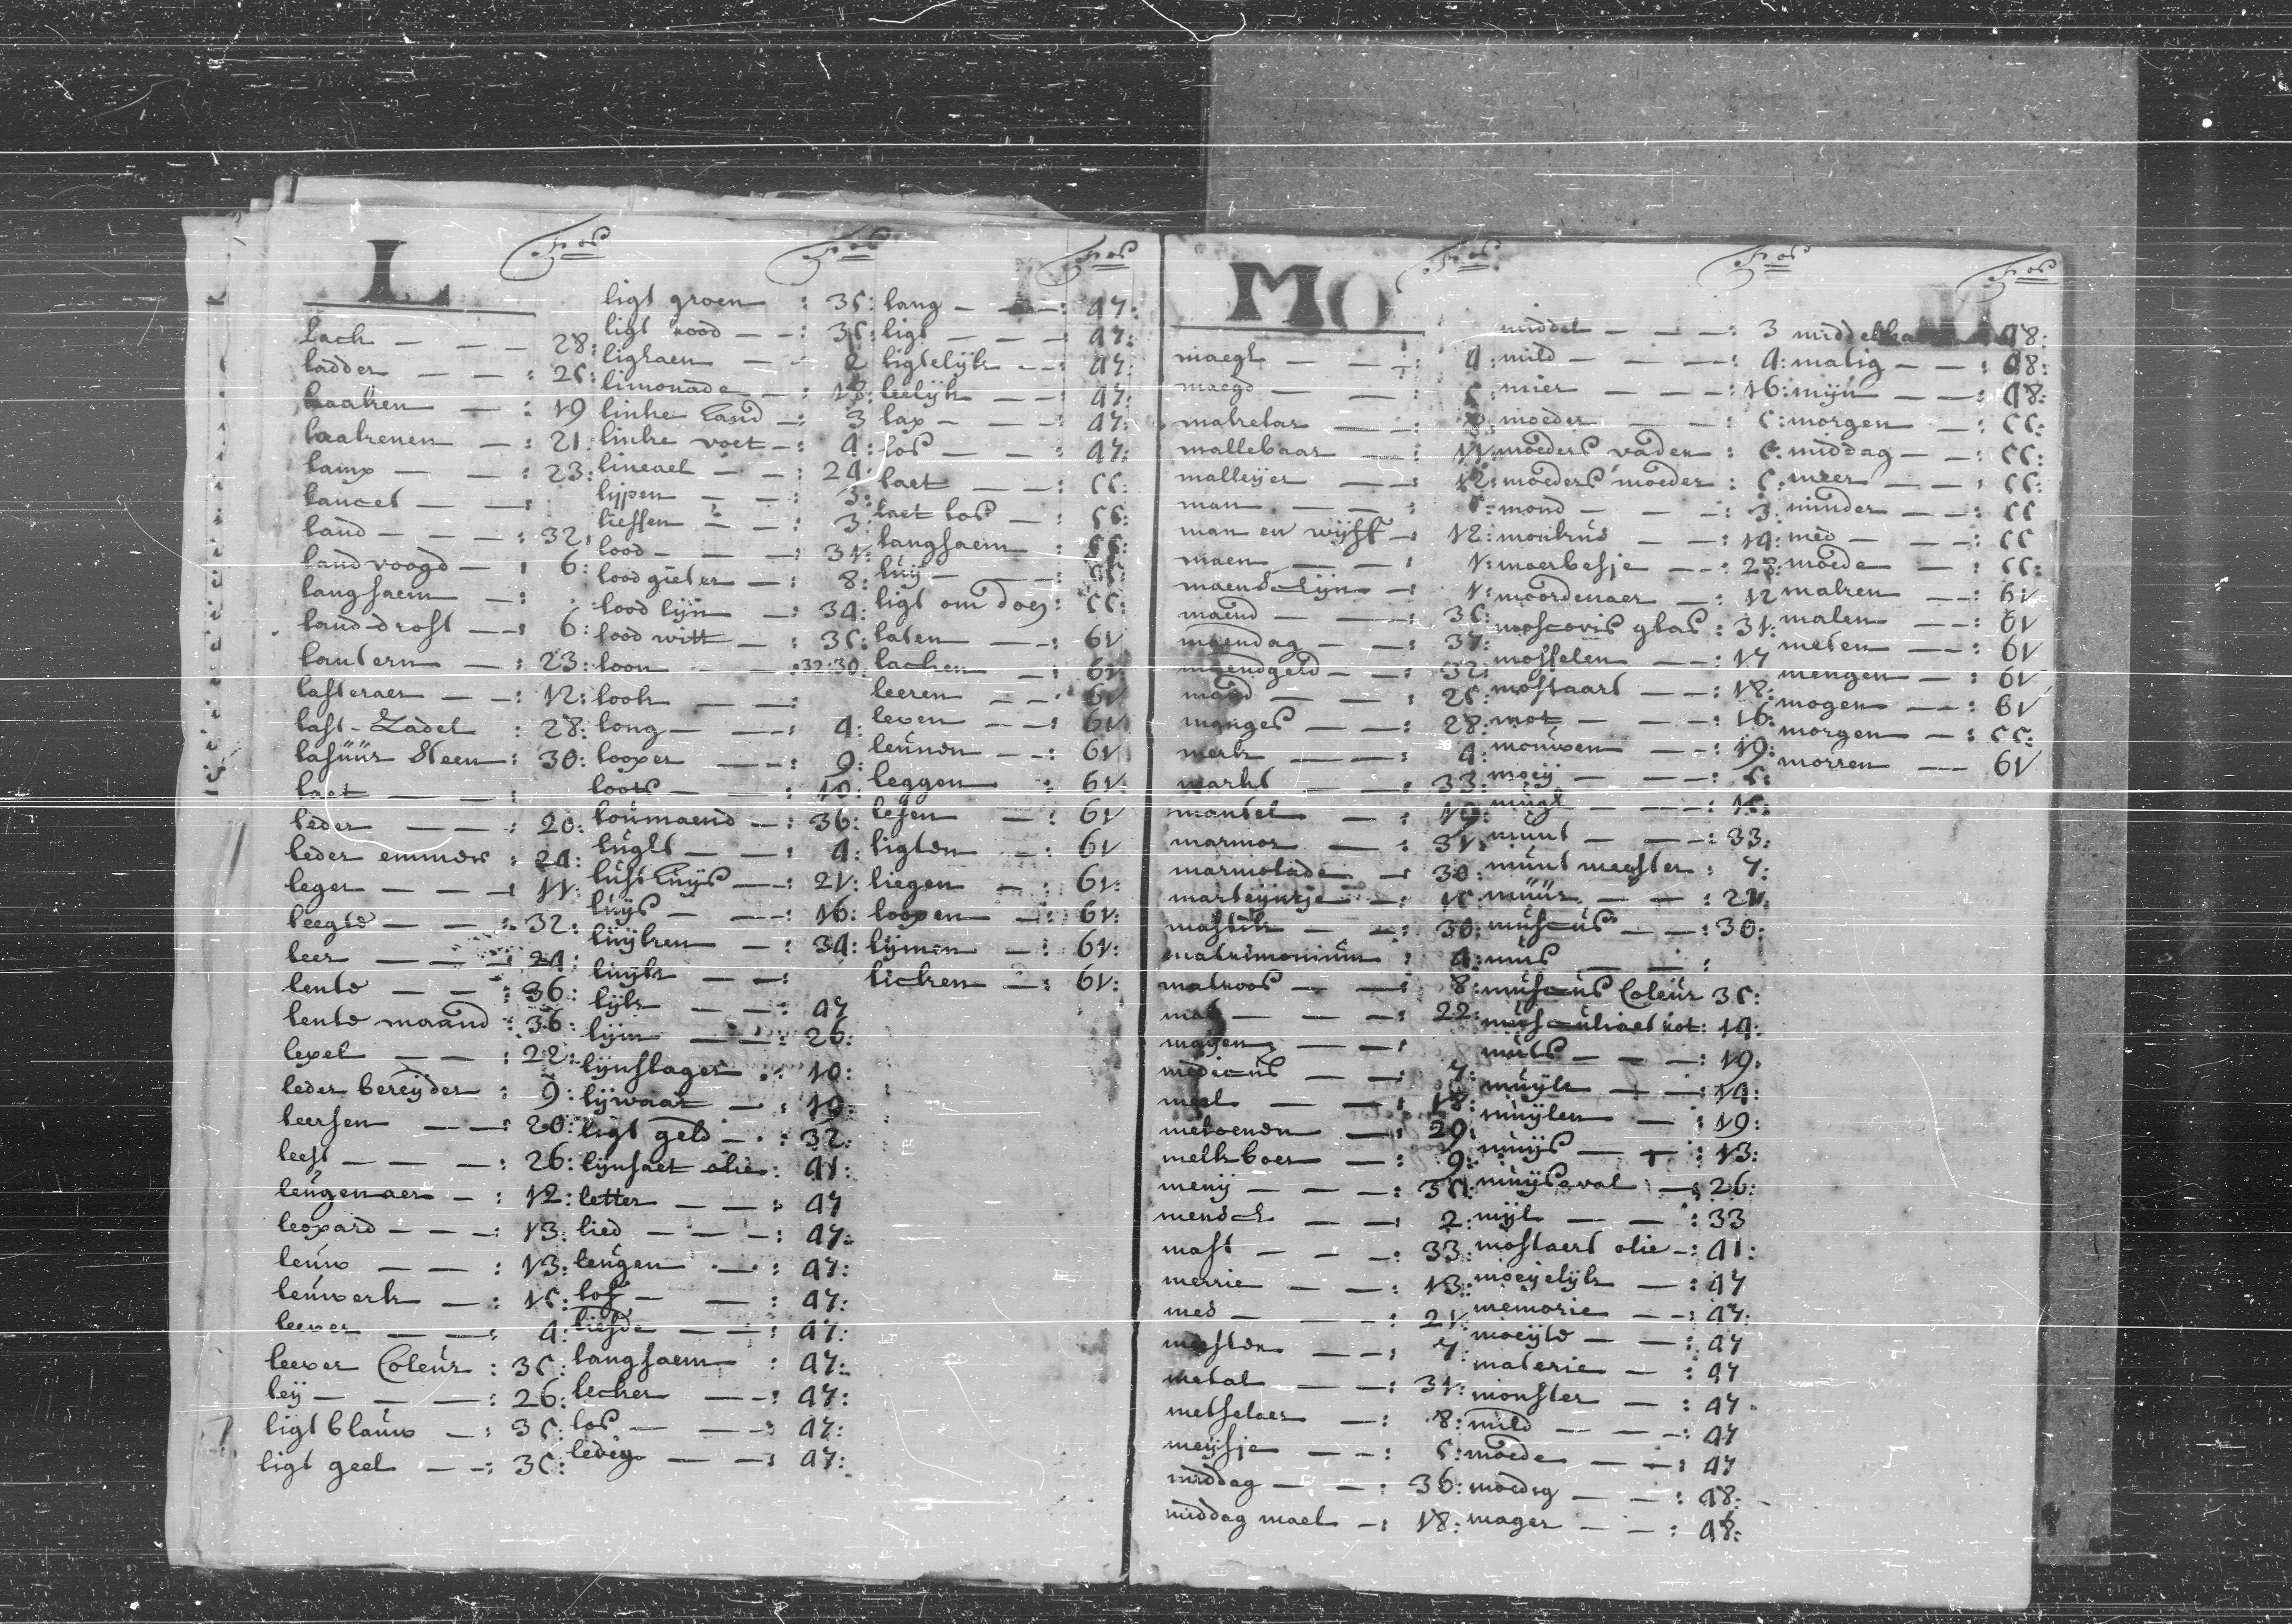 L
Fos
lach — — — 28:
ladder — — : 25:
laaken — : 19
laakenen — : 21:
lamp — — : 23:
lancet — — :
land — — — : 32:
land voogd — : 6:
langsaem — :
land-drost — : 6:
lantern — : 23:
lasteraer — — : 12:
last-Zadel : 28:
lasuur steen : 30:
laet — — :
leder — — : 20:
leder emmer : 24:
leger — — — : 11:
leegte — — : 32:
leer — — — : 24:
lente — — : 36:
lente maand : 36:
lepel — — : 22:
leder bereyder : 9:
leersen — — : 20:
leest — — — : 26:
leugenaer — : 12:
leopard — — — : 13:
leuw — — : 13:
leuwerk — : 15:
leever — — : 4:
leever Coleur : 35:
leij — — — : 26:
ligt blauw — : 35:
ligt geel — — : 35:
Fos
ligt groen : 35:
ligt rood — — : 35:
lighaem — — 2
limonade — 18:
linke hand — : 3
linke voet — : 4:
lineael — — : 24:
lippen — — : 3:
liessen — — : 3:
lood — — — : 31:
lood gieter — : 8:
lood lijn — : 34:
lood witt — : 35:
loon — :32:30:
look — — :
long — — — : 4:
looper — — : 9:
loots — — 10:
loumaend — : 36:
lught — — : 4:
lusthuys — — : 21:
luys — — — : 16:
luyken — : 34:
luyk — — :
lijk — — : 47
lijm — — : 26:
lijnslager : 10:
lijwaat — : 19:
ligt geld — : 32:
lijnsaet olie : 41:
letter — — : 47
lied — — — : 47:
leugen — : 47:
lof — — : 47:
liefde — — : 47:
langsaem : 47:
lecker — — : 47:
los — — : 47:
ledig — — : 47:
Fos
lang — — : 47:
ligt — — — : 47:
ligtelijk — — : 47:
leelijk — — : 47:
lap — — — : 47:
los — — : 47:
laet — — : 55:
laet los — : 55:
langsaem : 55:
luij — — : 55:
ligt om doen : 55:
laten — — : 61
lachen — : 61:
leeren — — : 61
leven — — : 61
leunen — — : 61
leggen — : 61:
lesen — : 61
ligten — : 61
liegen — : 61:
loopen — : 61:
lijmen — : 61:
licken — : 61:
MO
Fos
maegt — — : 4:
maegd — — 5:
makelar —
mallebaar — : 11:
malleyer — — 12:
man — — — : 5:
man en wijff — : 12:
maen — — : 1:
maenschijn — : 1:
maend — — : 36:
maendag — — : 37:
maendgeld — — : 32:
mand — — : 25:
manges — — : 28:
merk — — — : 4:
markt — — : 33:
mantel — : 19:
marmor — : 31:
marmolade — : 30:
marteyntje — : 15:
mastik — — : 30:
matrimonium : 4:
matroos — — : 8:
mat — — — : 22:
mayen — — :
medicus — — : 7:
meel — — — : 18:
meloenen — : 29:
melk boer — : 9:
menij — — — : 35:
mensch — — : 2:
mast — — — : 33:
merrie — — : 13:
mes — — — : 21:
mesten — — : 7:
metal — — : 31:
metselaer — : 8:
meysje — — : 5:
middag — — : 36:
middag mael — : 18:
Fos
middel — — — : 3
mild — — — : 4:
mier — — — : 16:
moeder — — : 5:
moeders vader : 5:
moeders moeder : 5:
mond — — — : 3:
monkus — — : 14:
moerbesje — — : 28:
moordenaer — : 12
moscovis glas : 31:
mosselen — — : 17
mostaart — — : 18:
mot — — — : 16:
mouwen — — : 19:
moeij — — — : 5:
mugt — — — : 15:
munt — — — : 33:
munt meester : 7:
muur — — : 21:
muscus — — : 30:
mus — — :
muscus Coleur 35:
musculiaet not : 14:
muts — — — : 19:
muyl — — : 14:
muylen — : 19:
muys — — : 13:
muyseval — : 26:
mijl — — : 33
mostaert olie — : 41:
moeyelijk — : 47
memorie — — : 47:
moeyte — — : 47
materie — : 47
monster — : 47
mild — — — : 47
moede — — : 47
moedig — — : 48:
mager — — : 48:
Fos
48:
matig — — : 48:
mijn — — : 48:
morgen — : 55:
middag — — : 55:
meer — — — : 55:
minder — — : 55
med — — — : 55
moede — : 55:
maken — — : 61
malen — — : 61
meten — — : 61
mengen — : 61
mogen — — : 61
morgen — : 55:
morren — — 61